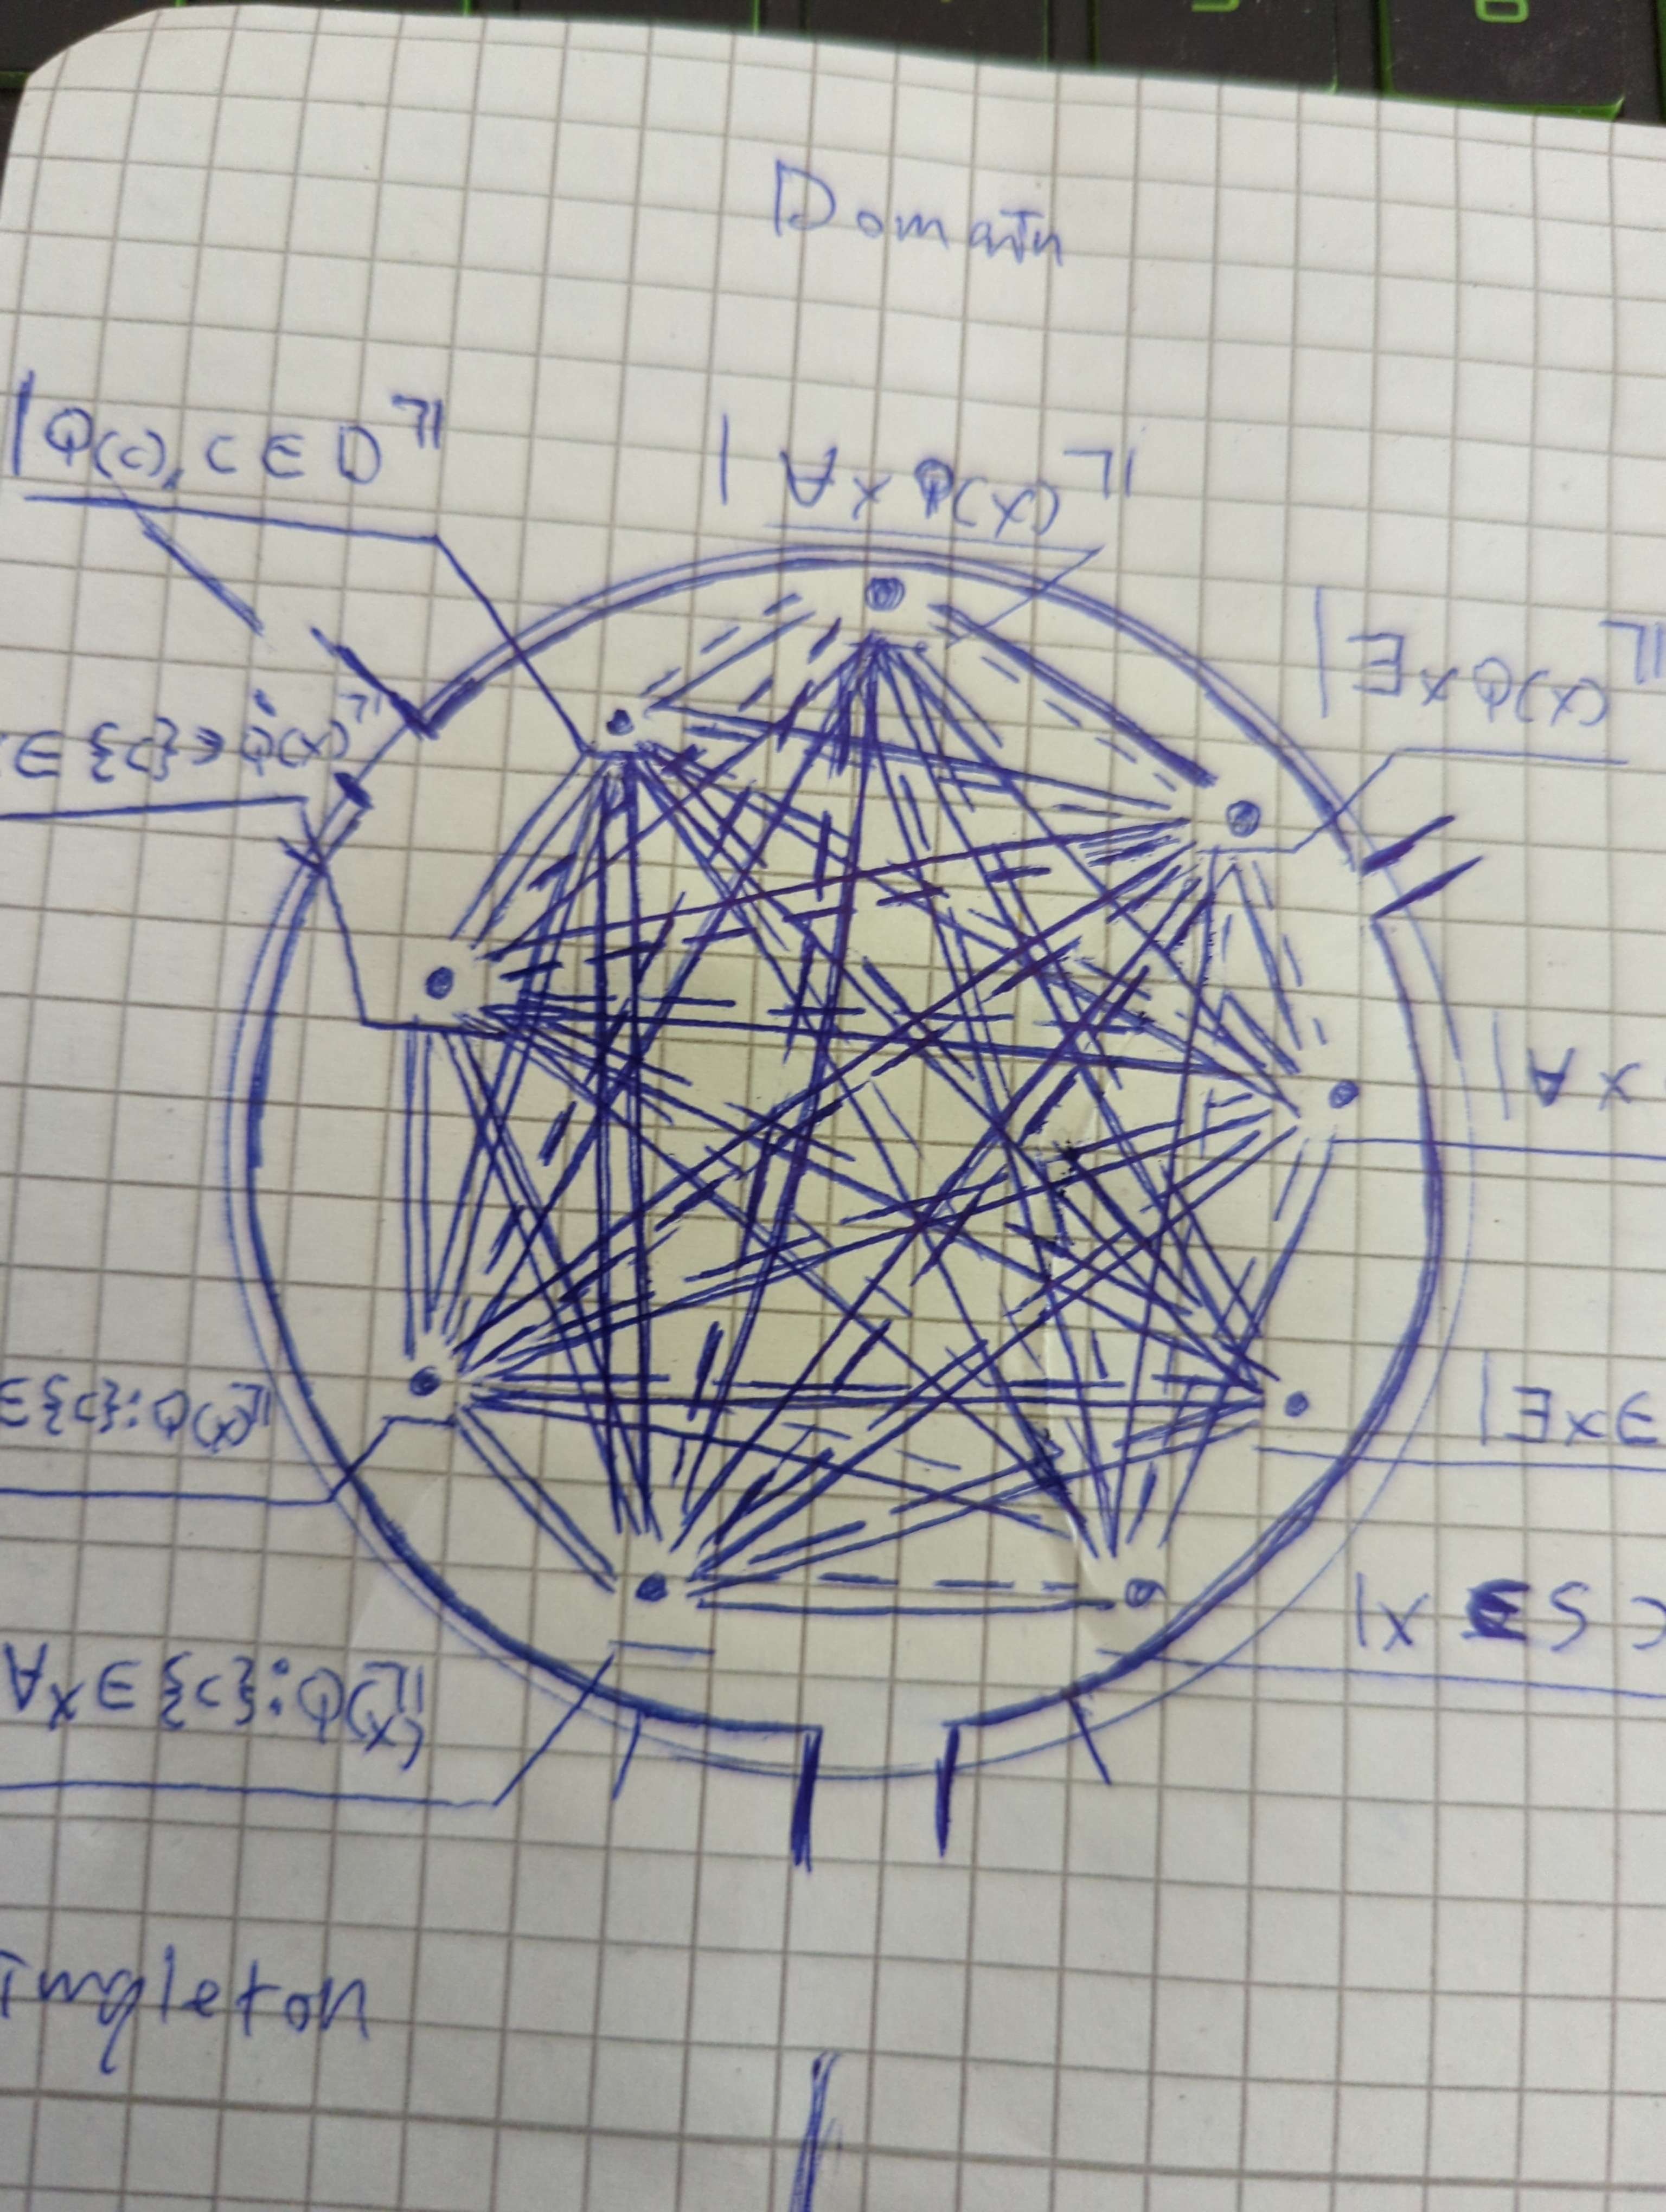 Domain
|Φ(c), c ∈ D ⅂|
|∀xΦ(x)⅂|
|∃xΦ(x)⅂|
∈ {c} → Φ(x)⅂|
|∀x
∈{c}:Φ(x)⅂|
|∃x∋
|x
∀x∈{c}:Φ(x)⅂|
ingleton